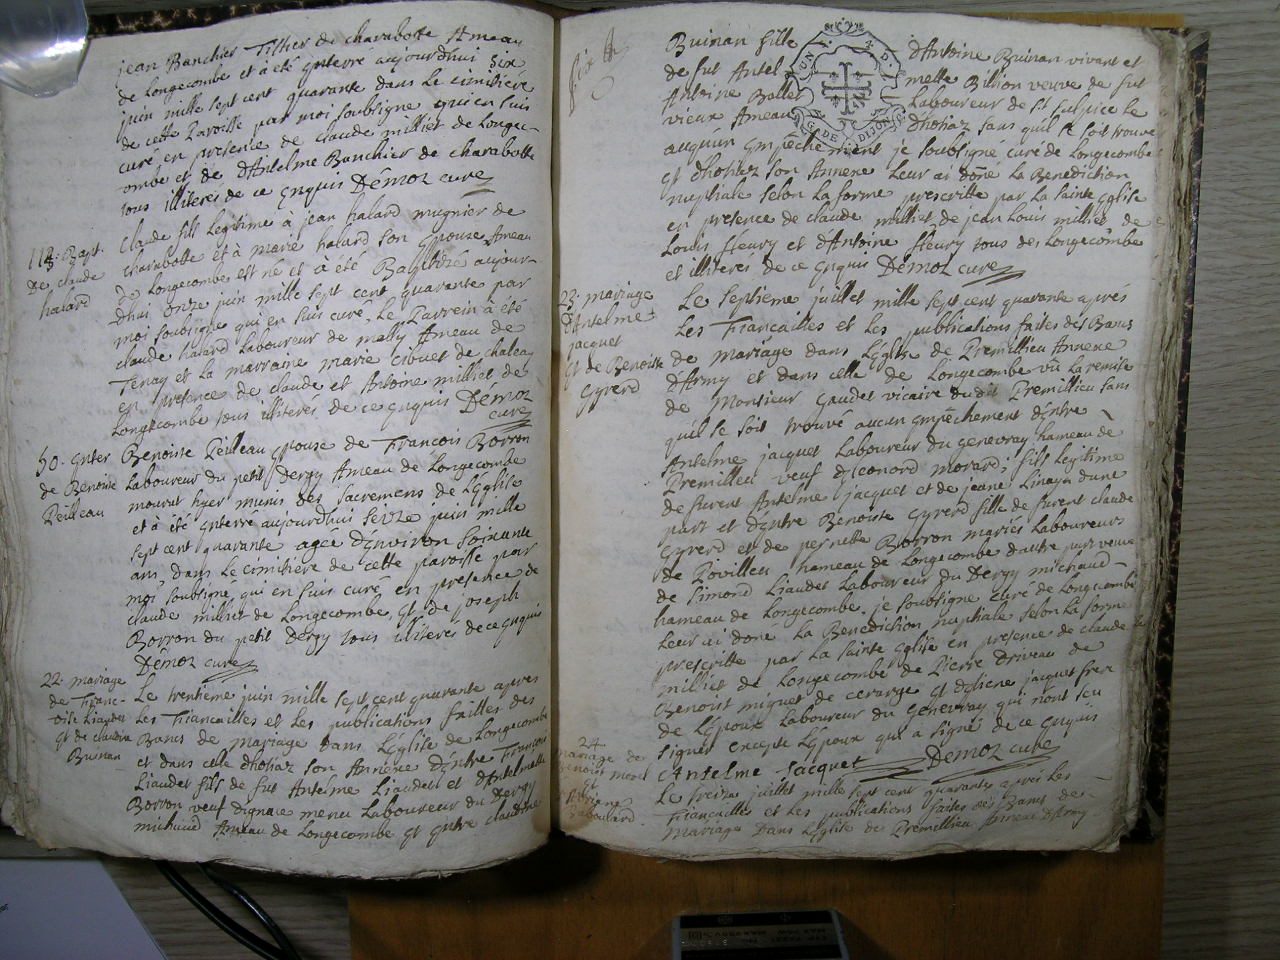 jean Banchier Tissier de charabotte Ameau
de Longecombe et à été Enterré aujourdhui six
juin mille sept cent quarante dans le cimitiére
de cette Paroisse par moi soubsigné qui en suis
curé en presence de claude milliet de Longec-
ombe et de d'Antelme Banchier de charabotte
tous illiterés de ce Enquis Démoz curé
118. Bapt.
De claude
halard
Claude fils Legitime à jean halard mugnier de
charabotte et à marie halard son Epouse Ameau
de Longecombe est né et à été Baptizé aujour-
dhui onze juin mille sept cent quarante par
moi soubsigné qui en suis curé, Le Parrein à été
claude halard Laboureur de mally Ameau de
Tenay et La marraine marie cibuet de chaley
en presence de claude et Antoine milliet de
Longecombe tous illiterés de ce Enquis Démoz
curé
50. Enter
de Benoite
Peilleau
Benoite Peilleau Epouse de François Borron
Laboureur du petit Dergy Ameau de Longecombe
mourut hyer munis des sacremens de L'Eglise
et à été Enterre aujourdhui seize juin mille
sept cent quarante agee d'Environ soixante
ans, dans Le cimitiére de cette paroisse par
moi soubsigné, qui en suis curé, en presence de
claude milliet de Longecombe, Et de joseph
Borron du petit Dergy tous illiteres de ce Enquis
Démoz curé
22. mariage
de Franc-
ois Liaudet
Et de claudine
Buinan
Le trentiéme juin mille sept cent quarante apres
Les Fiancailles et Les publications faittes des
Bancs de mariage dans L'Eglise de Longecombe
et dans celle d'hotiaz son Annéxe d'Entre François
Liaudet fils de fut Antelme Liaudet et d'Antelmette
Borron veuf dignace menu Laboureur du Dergy
michaud Ameau de Longecombe Et Entre claudine
Buinan fille d'Antoine Buinan vivant et
de fut Antel mette Bilion veuve de fut
Antoine Ballet Laboureur de st sulpice Le
vieux Ameau d'hotiaz sans qu'il se soit trouvé
augun Empéchement je soubsigné curé de Longecombe
Et d'hotiaz son Annexe Leur ai doné La Benediction
nuptiale selon La forme prescritte par La sainte Eglise
en presence de claude milliet de jean Louis milliet de
Louis fleury et d'Antoine fleury tous de Longecombe
et illiterés de ce Enquis Démoz curé
23. mariage
d'Antelme
jacquet
Et de Benoitte
Gyrerd
Le septieme juillet mille sept cent quarante aprés
Les Fiancailles et Les publications faites des Bancs
de mariage dans L'Eglise de Premillieu Annexe
d'Army et dans celle de Longecombe vû La remise
de Monsieur Gaudet vicaire du dit Premillieu sans
qu'il se soit trouvé aucun empéchement d'Entre
Antelme jacquet Laboureur du Genevray hameau de
Premilleu veuf d'Eleonord morard, fils legitime
de furent Antelme jacquet et de jeane Linaya dune
part et d'Entre Benoitte Gyrerd fille de furent claude
Gyrerd et de pernette Borron mariés Laboureurs
de Povilleu hameau de Longecombe dautre part veuve
de simond Liaudet Laboureur du Dergy michaud
hameau de Longecombe. je soubsigné curé de Longecombe
Leur ai doné La Benediction nuptiale selon La forme
prescritte par La sainte Eglise en presence de claude
milliet de Longecombe de Pierre driveau de
Benoit miguet de cerarge Et d'Etiene jacquet frere
de L'Epoux Laboureur du Genevray qui n'ont sçu
signer excepté L'Epoux qui a signé de ce Enquis
Antelme Jacquet Démoz curé
24
mariage de
Benoit
et
Le treize juillet mille sept cent quarante après Les
Fiancailles et Les publications faites des Bancs de
mariage Dans L'Eglise de Premillieu Ameau d'Army